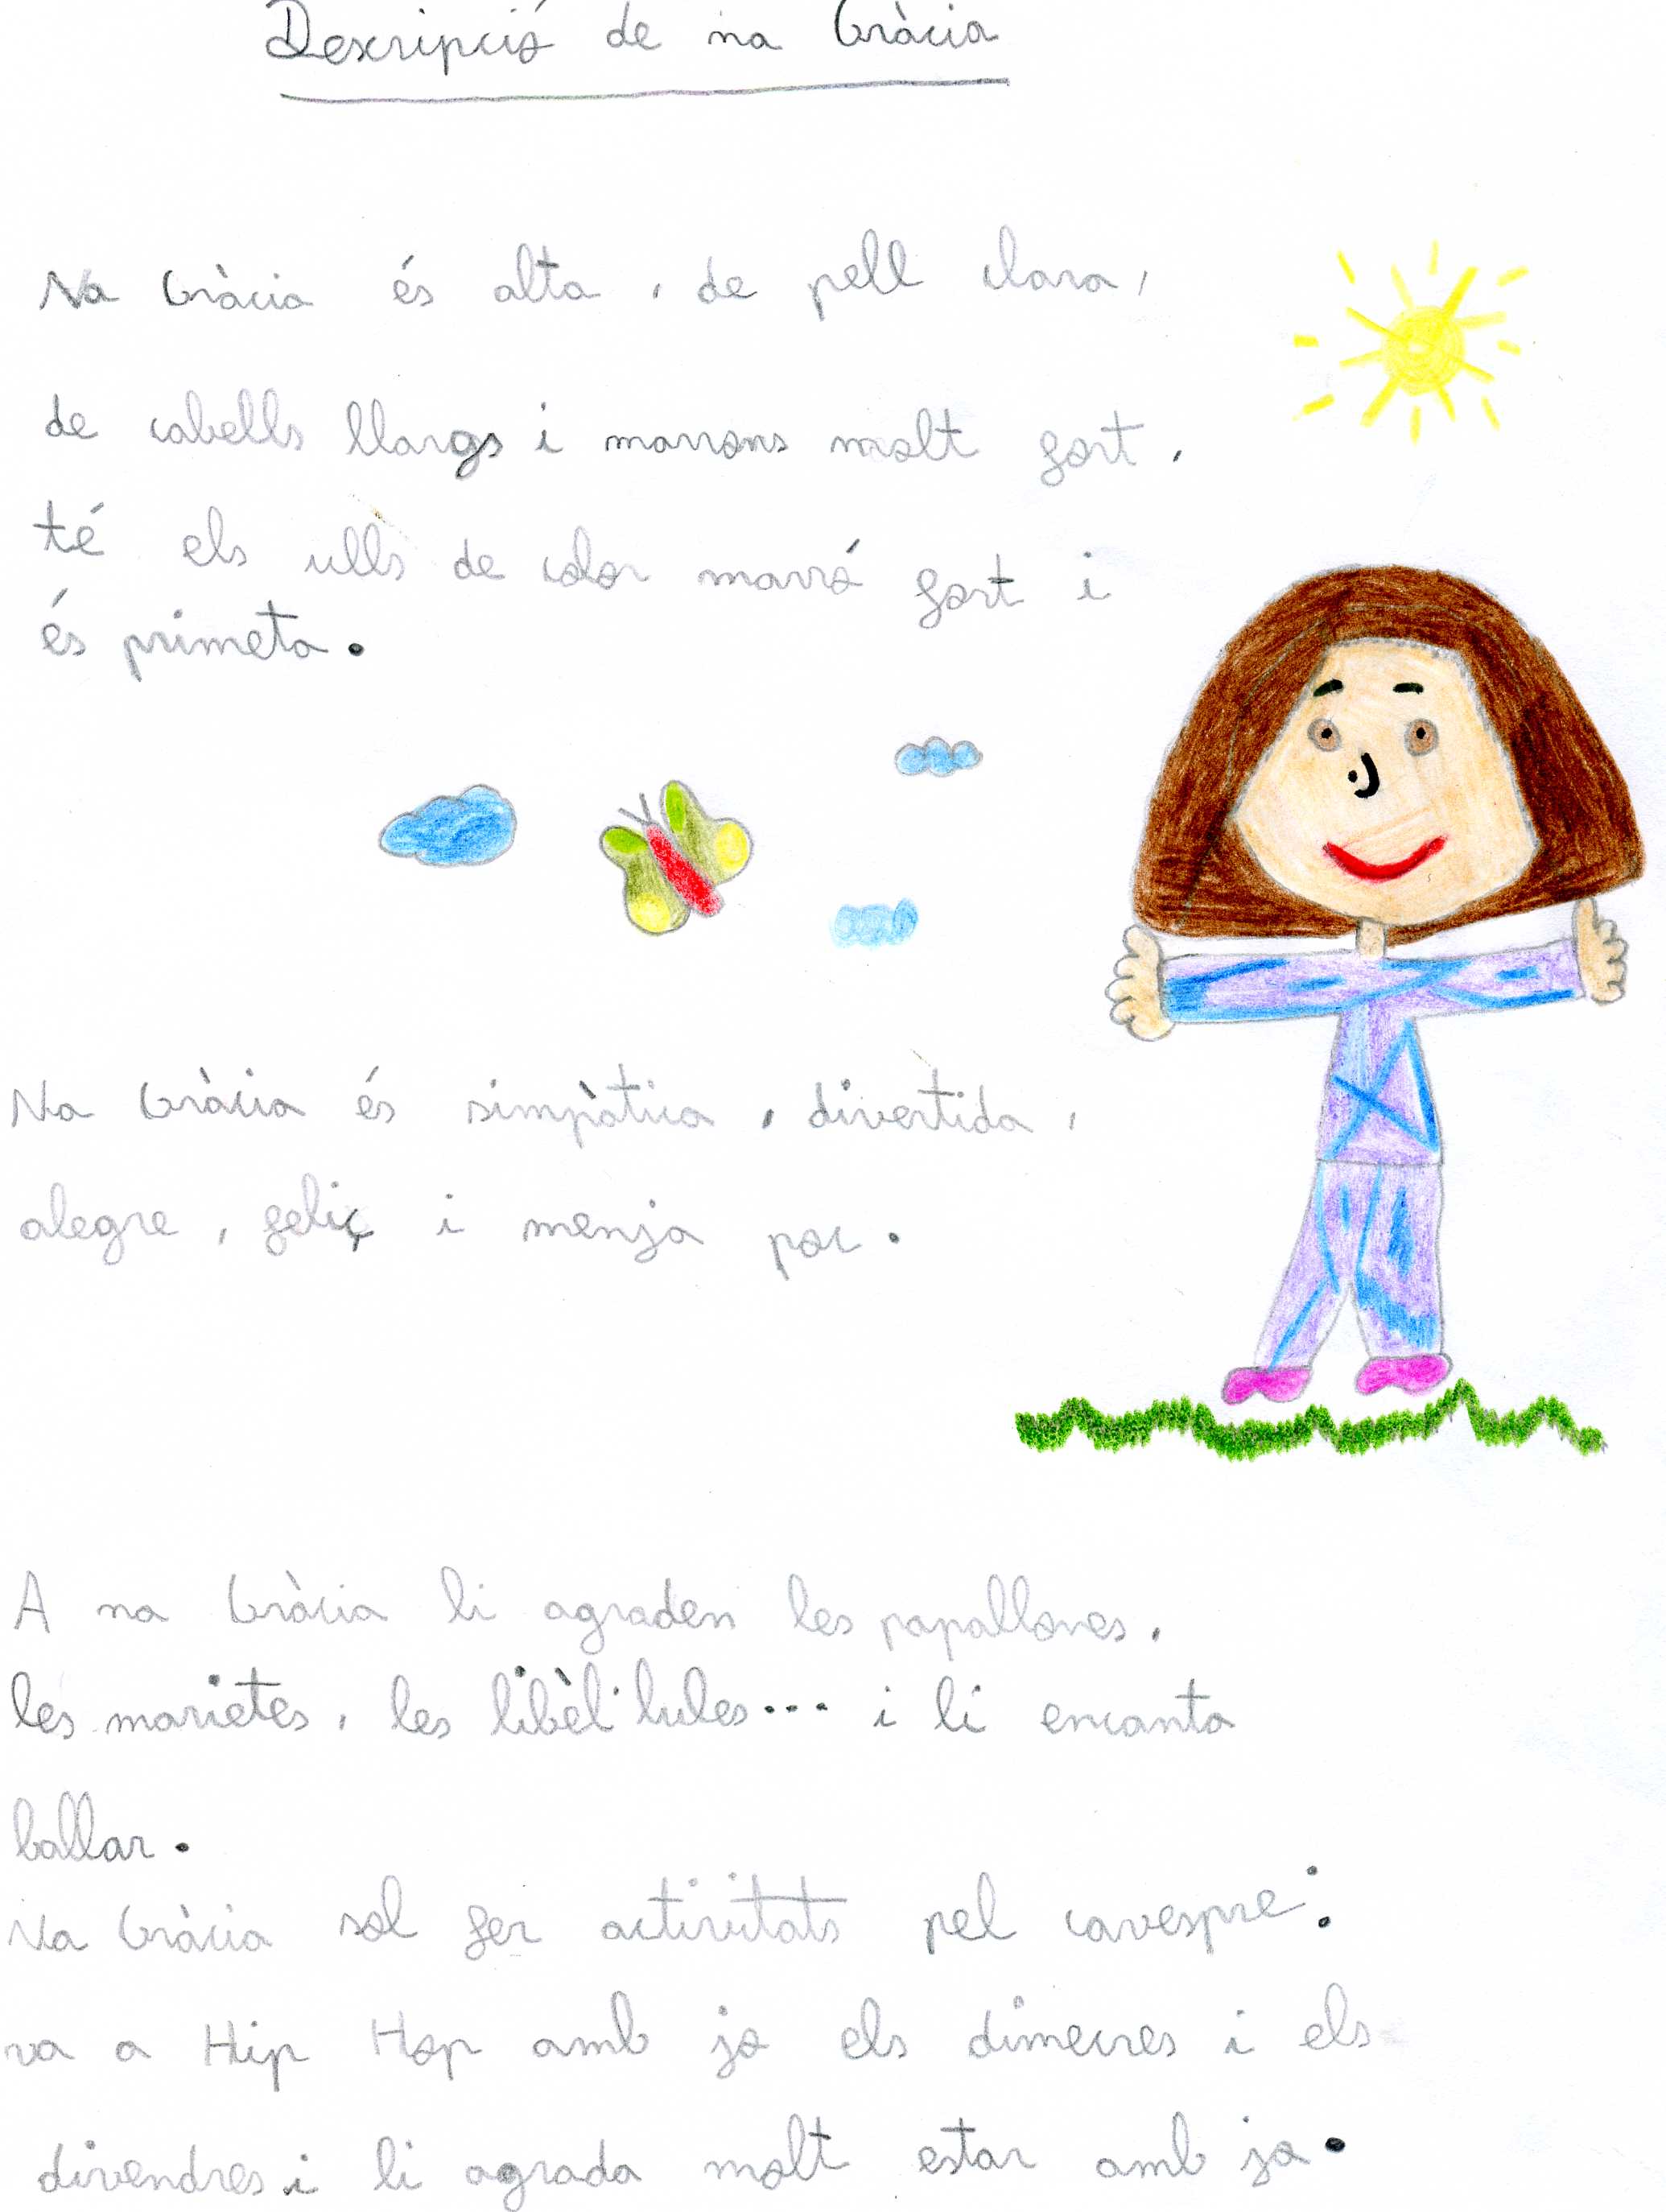 Descripció de na Gràcia
Na Gràcia és alta, de pell clara,
de cabells llargs i marrons molt fort,
té els ulls de color marró fort i
és primeta.
Na Gràcia és simpàtica, divertida,
alegre, feliç i menja poc.
A na Gràcia li agraden les papallones,
les marietes, les libèl·lules... i li encanta
ballar.
Na Gràcia sol fer activitats pel cavespre:
va a Hip Hop amb jo els dimecres i els
divendres i li agrada molt estar amb jo.